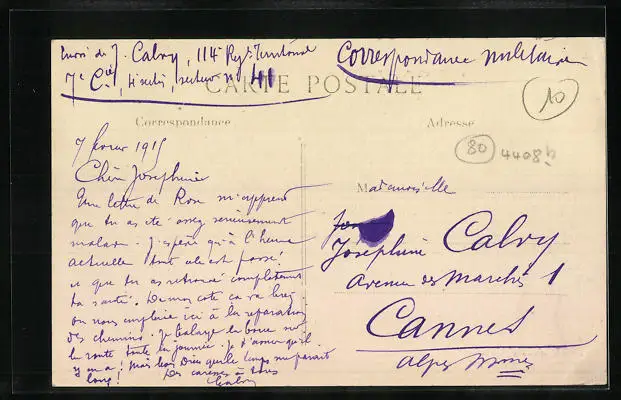 Envoi de J. Calvy, 114e Regt Territorial
7e Cie, 4e secton, secteur no 41
Correspondance militaire
CARTE POSTALE
10
Correspondance
Adresse
80
4408
7 février 1915
Chère Joséphine
Une lettre de Rose m'apprend
que tu as été assez sérieusement
malade. J'espère qu'à l'heure
actuelle tout cela est passé
et que tu as retrouvé complètement
ta santé. De mon côté ça va bien
on nous emploie ici à la réparation
des chemins. Je balaye la boue sur
la route toute la journée. Je t'assure qu'il
y en a! mais bon Dieu que le temps me parait
long! Des caresses à tous
Calvy
Mademoiselle
Joséphine Calvy
Avenue des Marchés 1
Cannes
Alpes Mmes